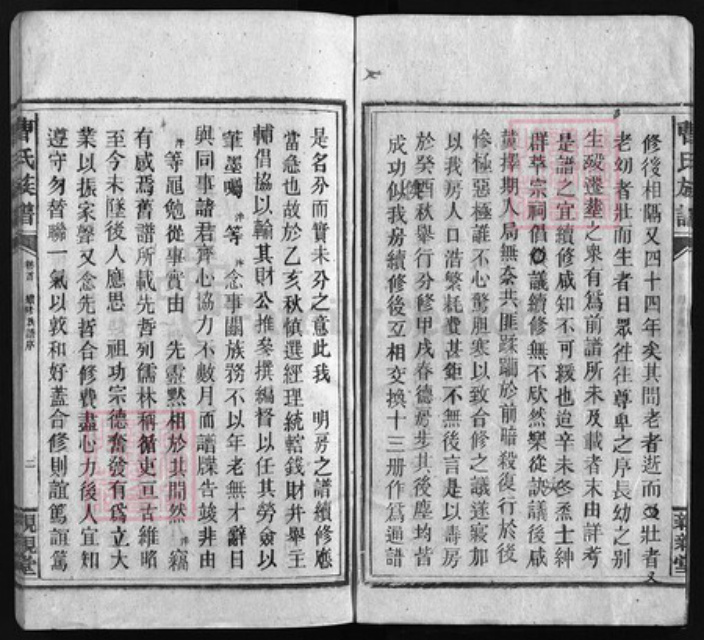 修後相隔又四十四年矣其間老者逝而壯者又
老幼者壯而生者日眾徃徃尊卑之序長幼之別
生殁遷塟之果有為前譜所未及載者末由詳考
是譜之宜續修咸知不可緩也迨辛未冬烝士紳
群萃宗祠倡議續修無不欣然樂從詎議後咸
黨擇期入局無奈共匪蹂躪於前暗殺復行於後
慘極惡極誰不心驚胆寒以致合修之議遂寢加
以我房人口浩繁耗費甚鉅不無後言是以壽房
於癸酉秋舉行分修甲戌春德房步其後塵均皆
成功似我房續修後互相交換十三册作為通譜
是名分而實未分之意此我 明房之譜續修應
當急也故於乙亥秋慎選經理統轄錢財并舉主
輔倡協以輸其財公推叅撰編督以任其勞僉以
筆墨囑 等 念事關族務不以年老無才辭日
與同事諸君齊心協力不數月而譜牒告竣非由
等黽勉從事實由 先靈默相於其間然 竊
有感焉舊譜所載先哲列儒林稱循吏亘古維昭
至今未墜後人應思 祖功宗德奮發有為立大
業以振家聲又念先哲合修費盡心力後人宜知
遵守勿替聯一氣以敦和好蓋合修則誼篤誼篤
曹氏族譜
二
親親堂
曹氏族譜
親親堂